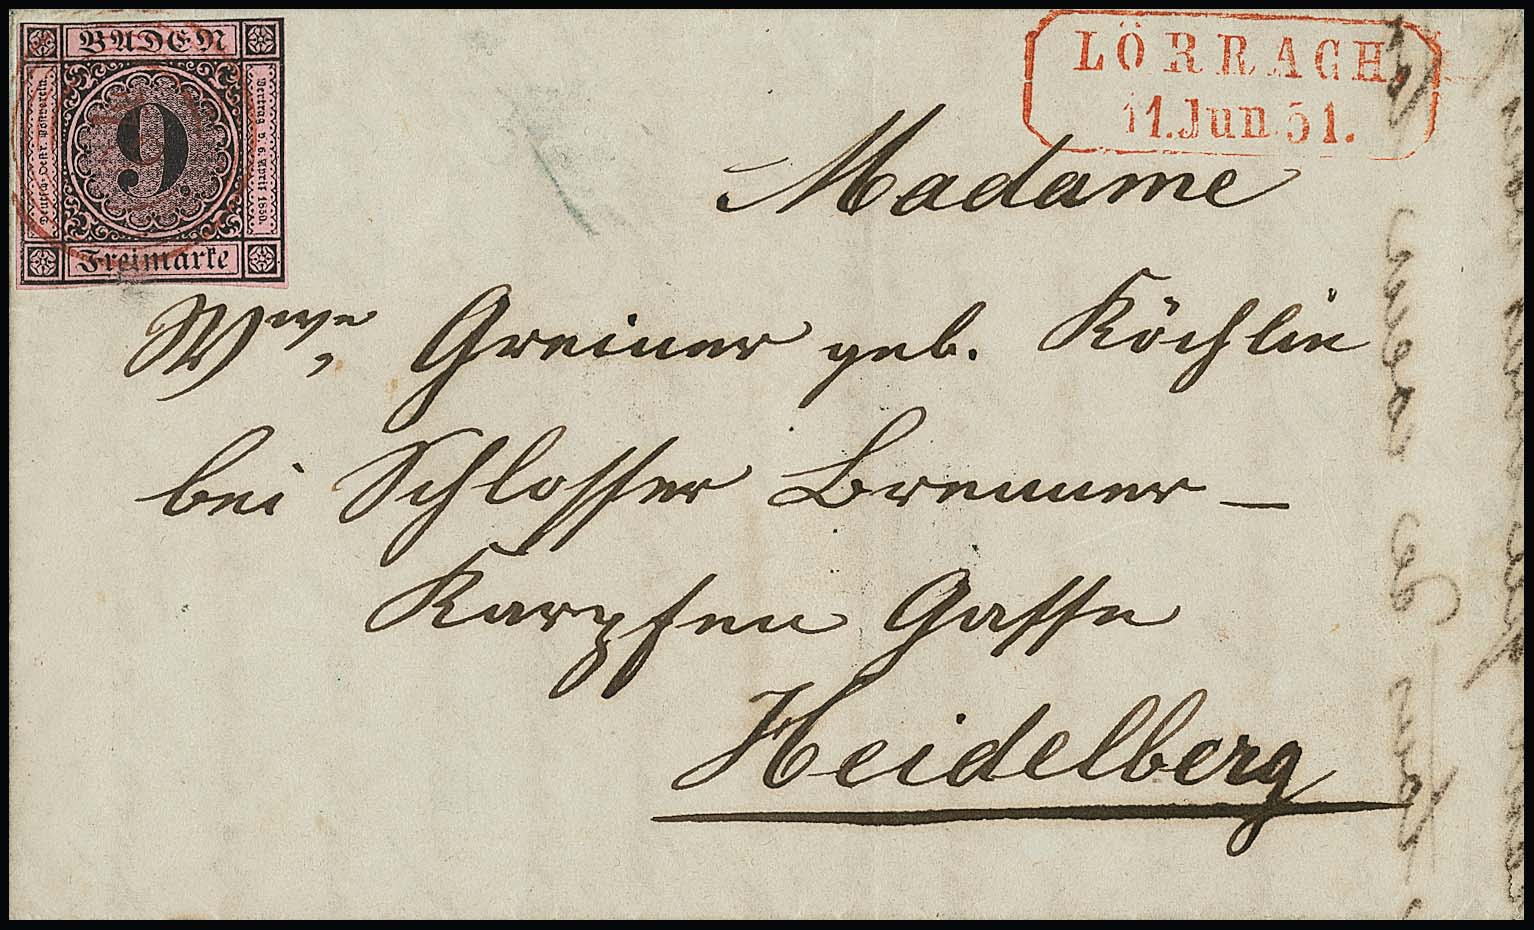 BADEN
Deutsch-Oestr. Postverein.
9
Vertrag v. 6. April 1850.
Freimarke
LÖRRACH
11.Jun 51.
Madame
Wwe, Greiner geb. Köchlin
bei Schlosser Brenner –
Karpfen Gasse
Heidelberg